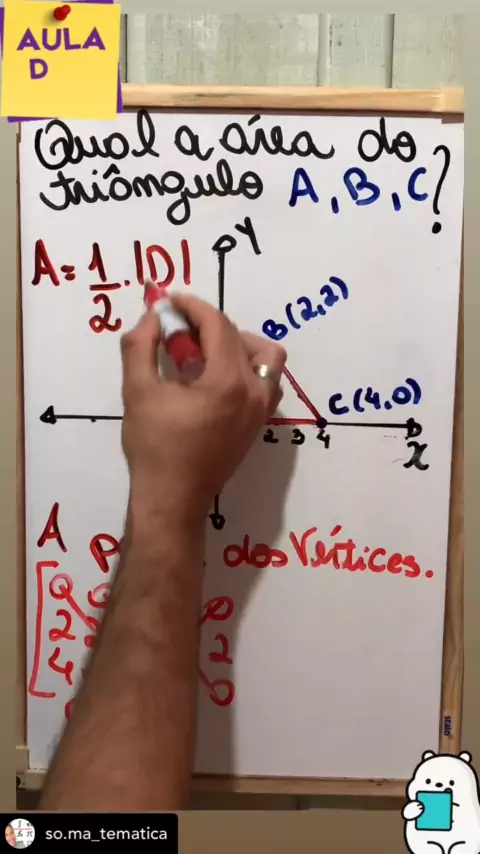 AULA
D
Qual a área do
triângulo A, B, C?
A = 1/2 . |D|
Y
B(2,2)
C(4,0)
2 3 4
x
A dos Vértices.
0
2 2
4 0
so.ma_tematica